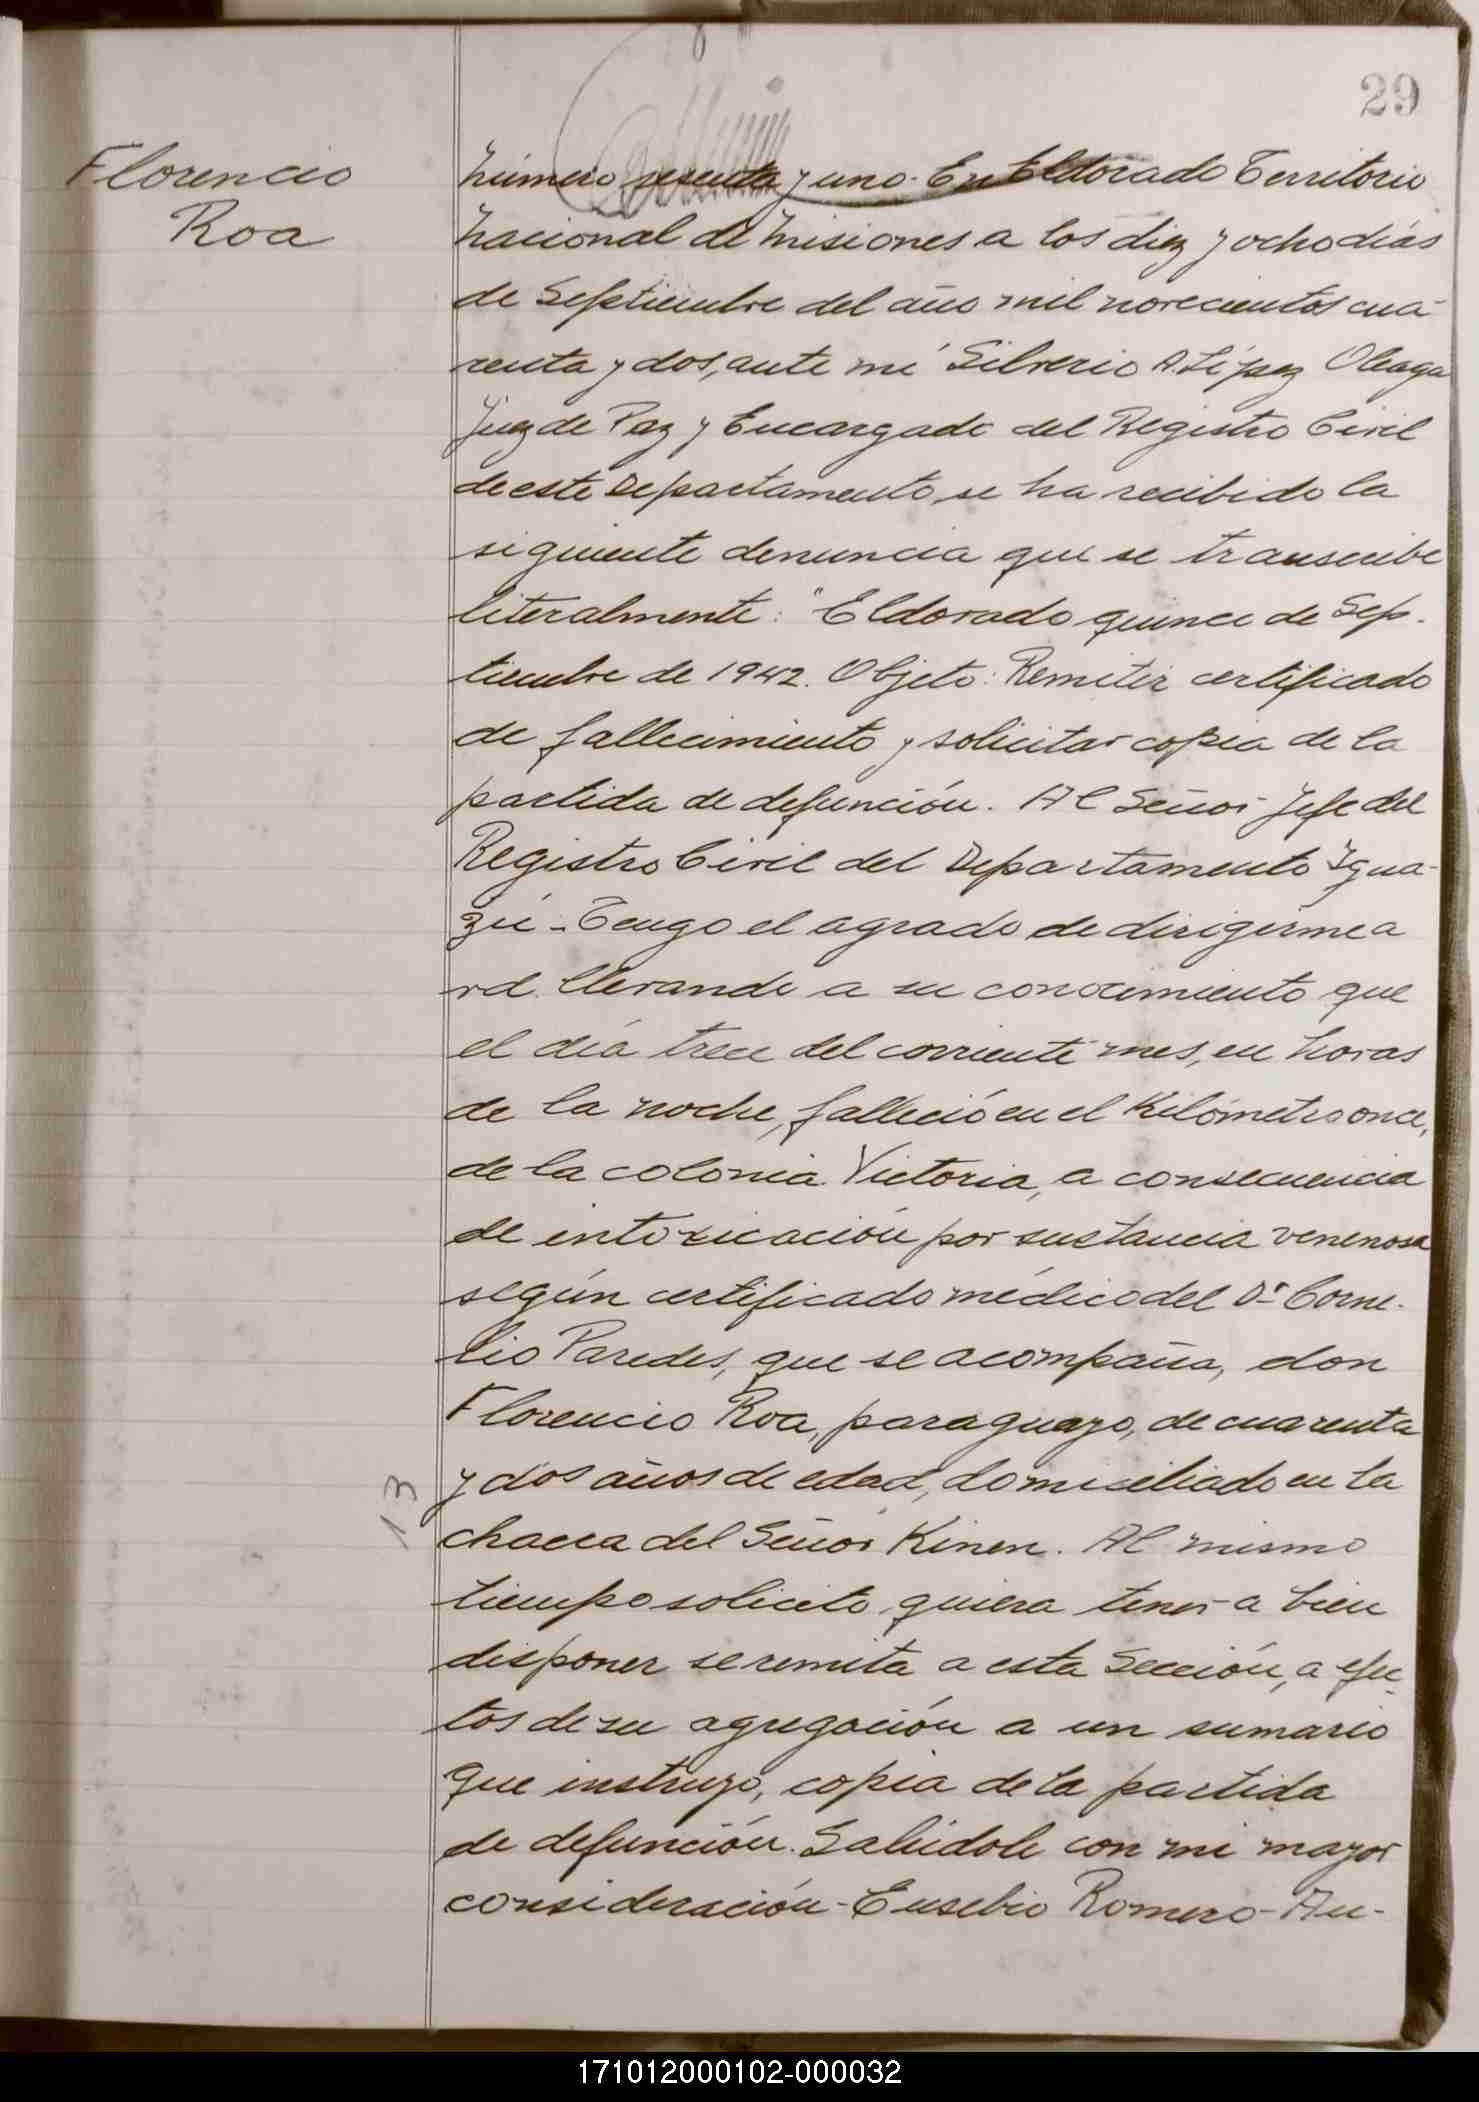 29
Florencio
Roa
Número sesenta y uno. En Eldorado Territorio
Nacional de Misiones a los diez y ocho días
de Septiembre del año mil novecientos cua-
renta y dos, ante mí Silverio A López Oleaga
Juez de Paz y Encargado del Registro Civil
de este Departamento, se ha recibido la
siguiente denuncia que se transcribe
literalmente: "Eldorado quince de Sep-
tiembre de 1942. Objeto: Remitir certificado
de fallecimiento y solicitar copia de la
partida de defunción. Al Señor Jefe del
Registro Civil del Departamento Igua-
zú - Tengo el agrado de dirigirme a
vd. llevando a su conocimiento que
el día trece del corriente mes, en horas
de la noche, falleció en el Kilómetro once,
de la colonia Victoria, a consecuencia
de intoxicación por sustancia venenosa
según certificado médico del Dr Corne-
lio Paredes, que se acompaña, don
Florencio Roa, paraguayo, de cuarenta
y dos años de edad, domiciliado en la
13
chacra del Señor Kinen. Al mismo
tiempo solicito quiera tener a bien
disponer se remita a esta Sección, a efec-
tos de su agregación a un sumario
que instruyo, copia de la partida
de defunción. Salúdole con mi mayor
consideración - Eusebio Romero - Au-
171012000102-000032